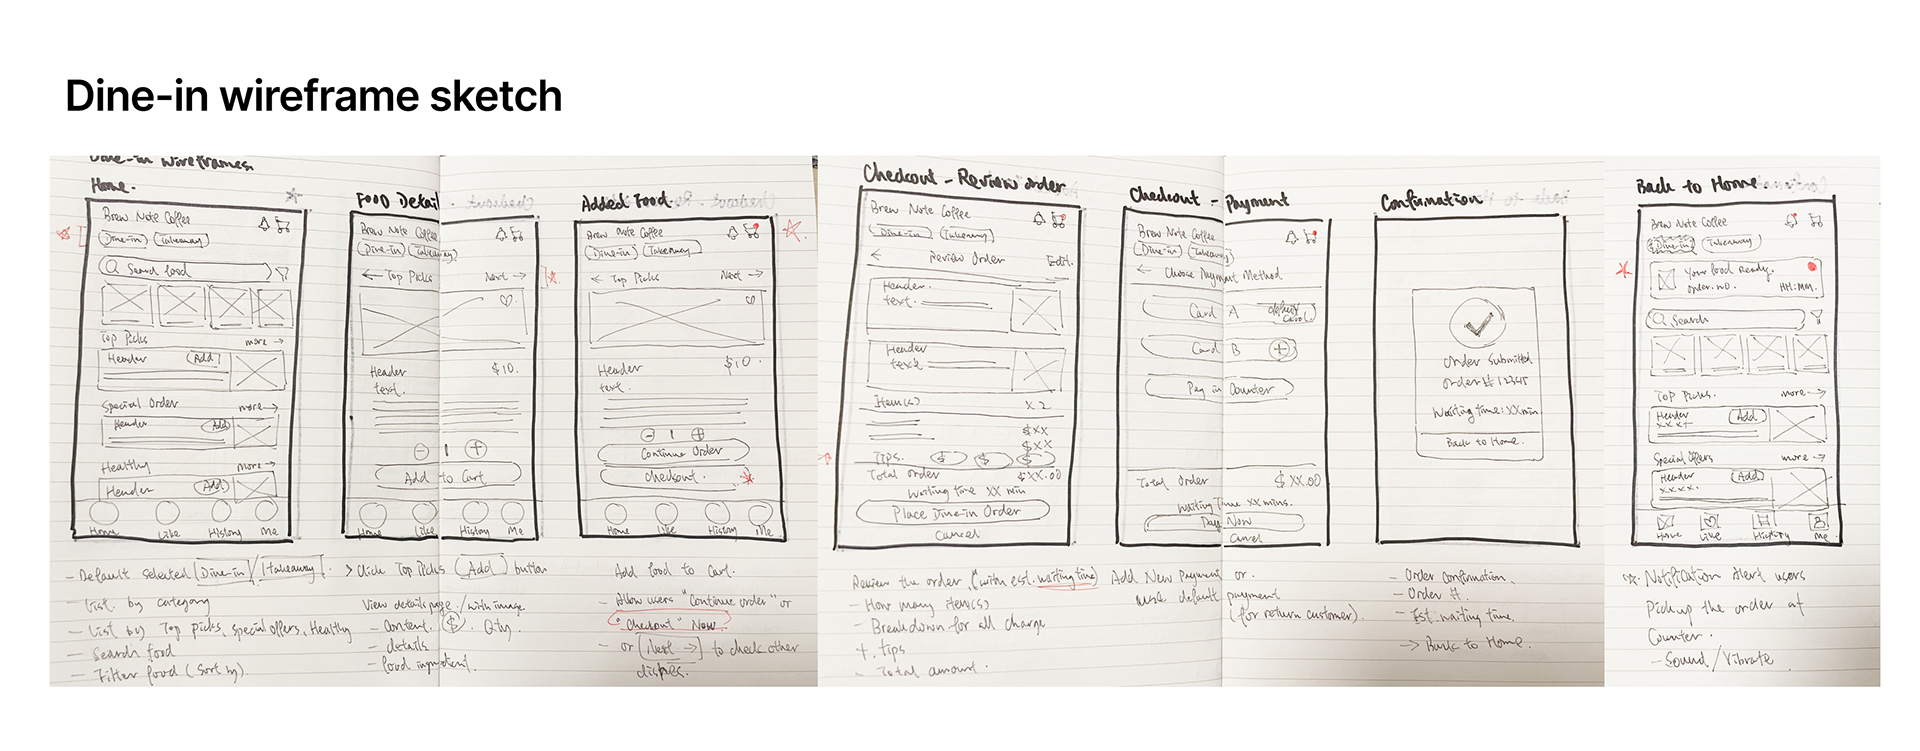 Dine-in wireframe sketch
Dine-in Wireframes
Home.
Brew Note Coffee
Dine-in Takeaway
Search food
Top Picks more →
Header Add
Special Order more →
Header Add
Healthy more →
Header Add
Home Like History Me
- Default selected Dine-in / Takeaway.
- List by category
- List by Top picks, special offers, Healthy
- Search food
- Filter food (sort by).
Food Detail
Brew Note Coffee
Dine-in Takeaway
← Top Picks Next →
Header $10.
text.
- 1 +
Add to Cart
Home Like History Me
> Click Top Picks Add button
View details page / with image.
- Content. $. Qty.
- details
- food ingredient.
Added Food.
Brew Note Coffee
Dine-in Takeaway
← Top Picks Next →
Header $10.
text.
- 1 +
Continue Order
Checkout.
Home Like History Me
Add food to Cart.
- Allow users "Continue order" or
"Checkout" Now.
- or Next → to check other
dishes.
Checkout - Review order
Brew Note Coffee
Dine-in Takeaway
← Review Order Edit.
Header.
text.
Header
text
Item(s) x 2
$xx
$xx
Tips. $ $ $
Total order $xx.00
Waiting time xx min
Place Dine-in Order
Cancel
Review the order, (with est. waiting time)
- How many item(s)
- Breakdown for all charge
+ tips
- Total amount.
Checkout - Payment
Brew Note Coffee
Dine-in Takeaway
← Choose Payment Method
Card A default card.
Card B +
Pay in Counter
Total Order $xx.00
Waiting Time xx mins.
Pay Now
Cancel
Add New Payment or.
use default payment
(for return customer).
Confirmation
Order Submitted
order # 12345
Waiting time: xx min.
Back to Home.
- Order Confirmation.
- Order #.
- Est. waiting time.
→ Back to Home.
Back to Home.
Brew Note Coffee
Dine-in Takeaway
Your food Ready.
order. no. HH:MM.
Search
Top Picks. more →
Header Add
xxxx
Special Offers more →
Header Add
xxxx.
Home Like History Me.
Notification Alert users
Pick up the order at
Counter.
- Sound / Vibrate